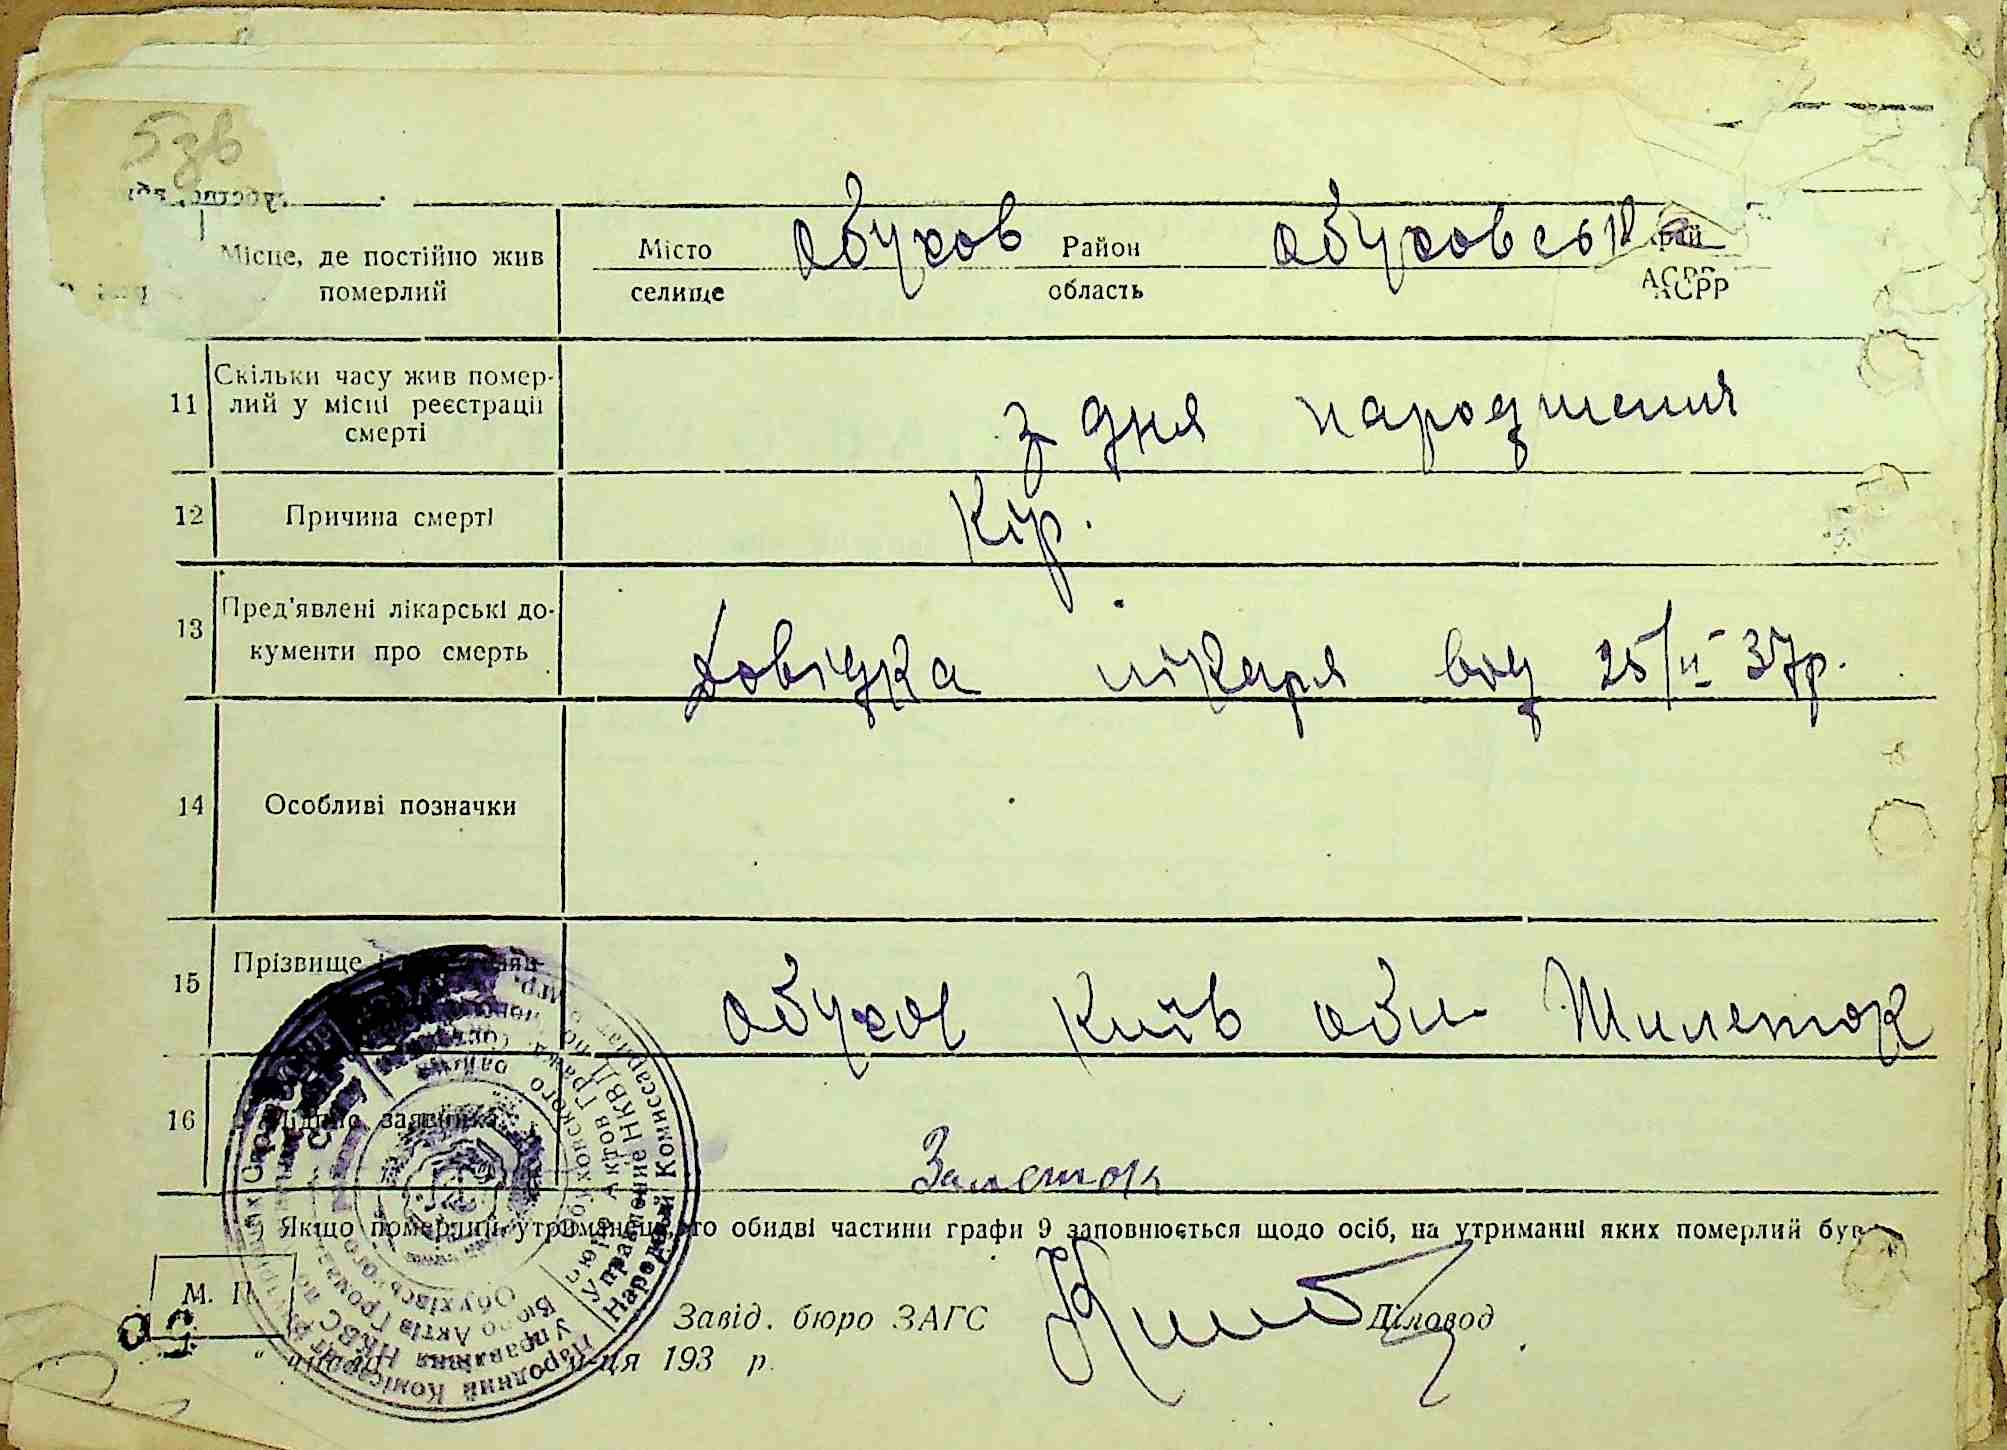 5зв
Місце, де постійно жив
померлий
Місто
селище
Обухов
Район
область
Обуховськ
край
АСРР
11
Скільки часу жив помер-
лий у місці реєстрації
смерті
з дня народження
12
Причина смерті
Кір.
13
Пред'явлені лікарські до-
кументи про смерть
Довідка лікаря вод 25/II 37р.
14
Особливі позначки
15
Прізвище
Обухов Київ обл
16
Підпис заявника
Якщо померлий утриманець, то обидві частини графи 9 заповнюється щодо осіб, на утриманні яких померлий був
М. П.
Завід. бюро ЗАГС
Діловод
м-ця 193 р.
Народний Комісаріат Внутрішніх Справ
Управління НКВС по
Бюро Актів Громад.
Обухівського
Народный Комиссариат
Управление НКВД по
Бюро Актов Гражд. Сост.
Обуховского района